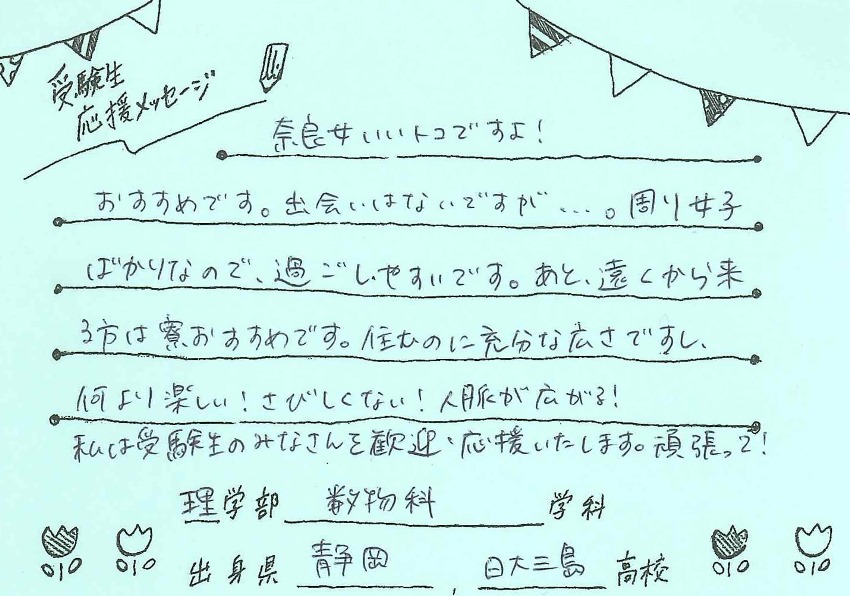 受験生
応援メッセージ
奈良女いいトコですよ！
おすすめです。出会いはないですが…。周り女子
ばかりなので、過ごしやすいです。あと、遠くから来
る方は寮おすすめです。住むのに充分な広さですし、
何より楽しい！さびしくない！人脈が広がる！
私は受験生のみなさんを歓迎・応援いたします。頑張って！
理学部 数物科 学科
出身県 静岡 , 日大三島 高校